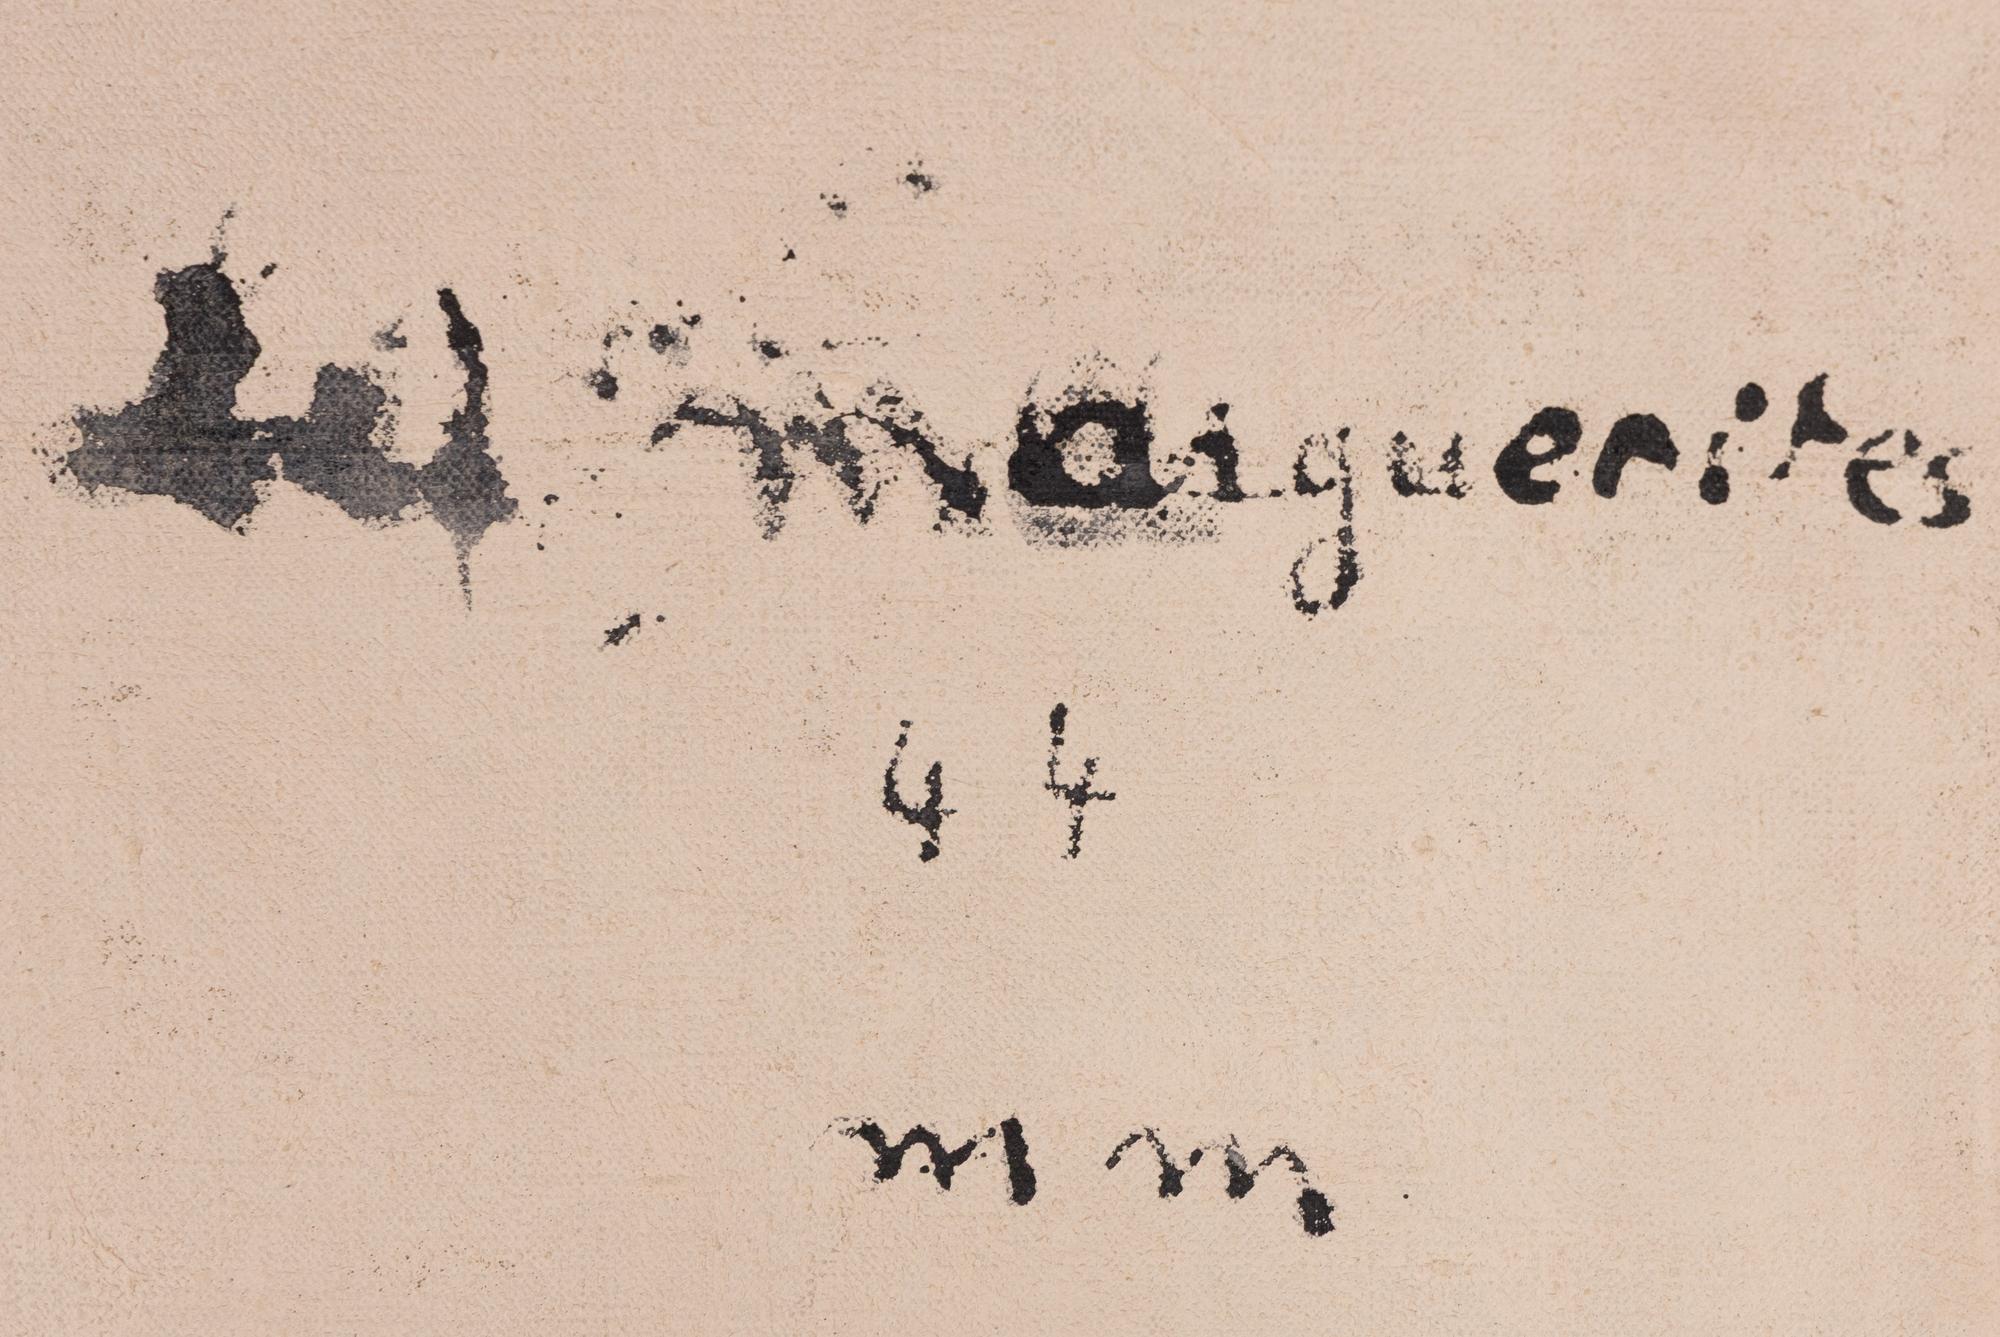 Les Marguerites
44
m m